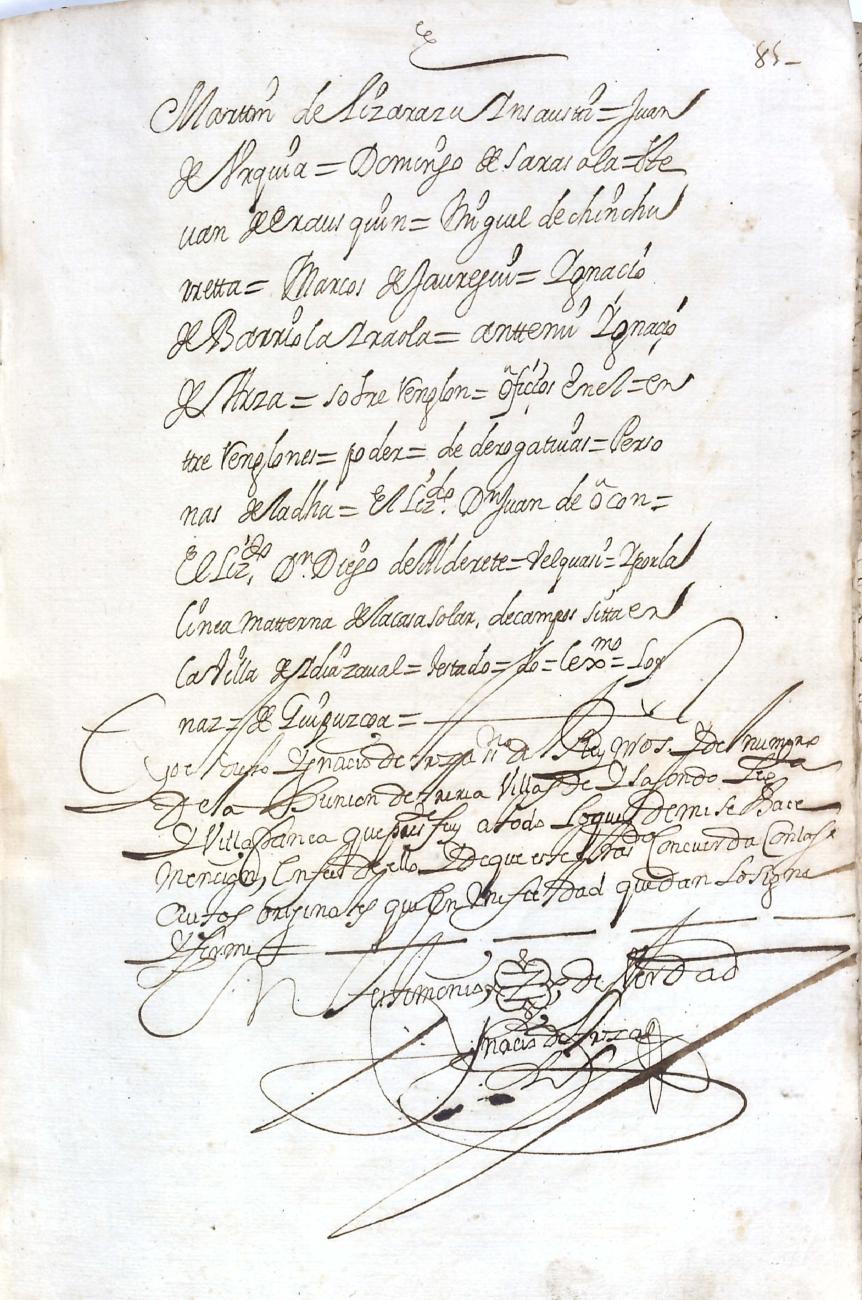 85-
Martin de Lizarazu Ynsausti = Juan
de Urquia = Domingo de Sarasola = Este
uan de Erausquin = Miguel de chinchu
rretta = Marcos de Jauregui = Ygnacio
de Barriola Yraola = anttemi Ygnaçio
de Arza = sobre Renglon = ofiçios En el = en
tre Renglones = poder = de derogativas = Perso
nas de la dha = El Lizdo. Dn Juan de
El Lizdo. Dn Diego de Alderete = Velquasi = Y por la
linea matterna de la casa solar, de campos sitta en
la Villa de Ydiazaval = testado = do = le xmo = Loy
naz = de Guipuzcoa =
Yo el Ygnacio de Arza sno del Rey nros. Y del numero
De la Hunion de Areria Villas de Ysasondo
Y Villafranca que press fui a todo lo que De mi se Haze
Mencion, En fee de ello Y de que este tras do Concuerda Con los
Autos originales que En Mi fieldad quedan Lo signe
Y firme
En testimonio de Verdad
Ygnacio de Arza